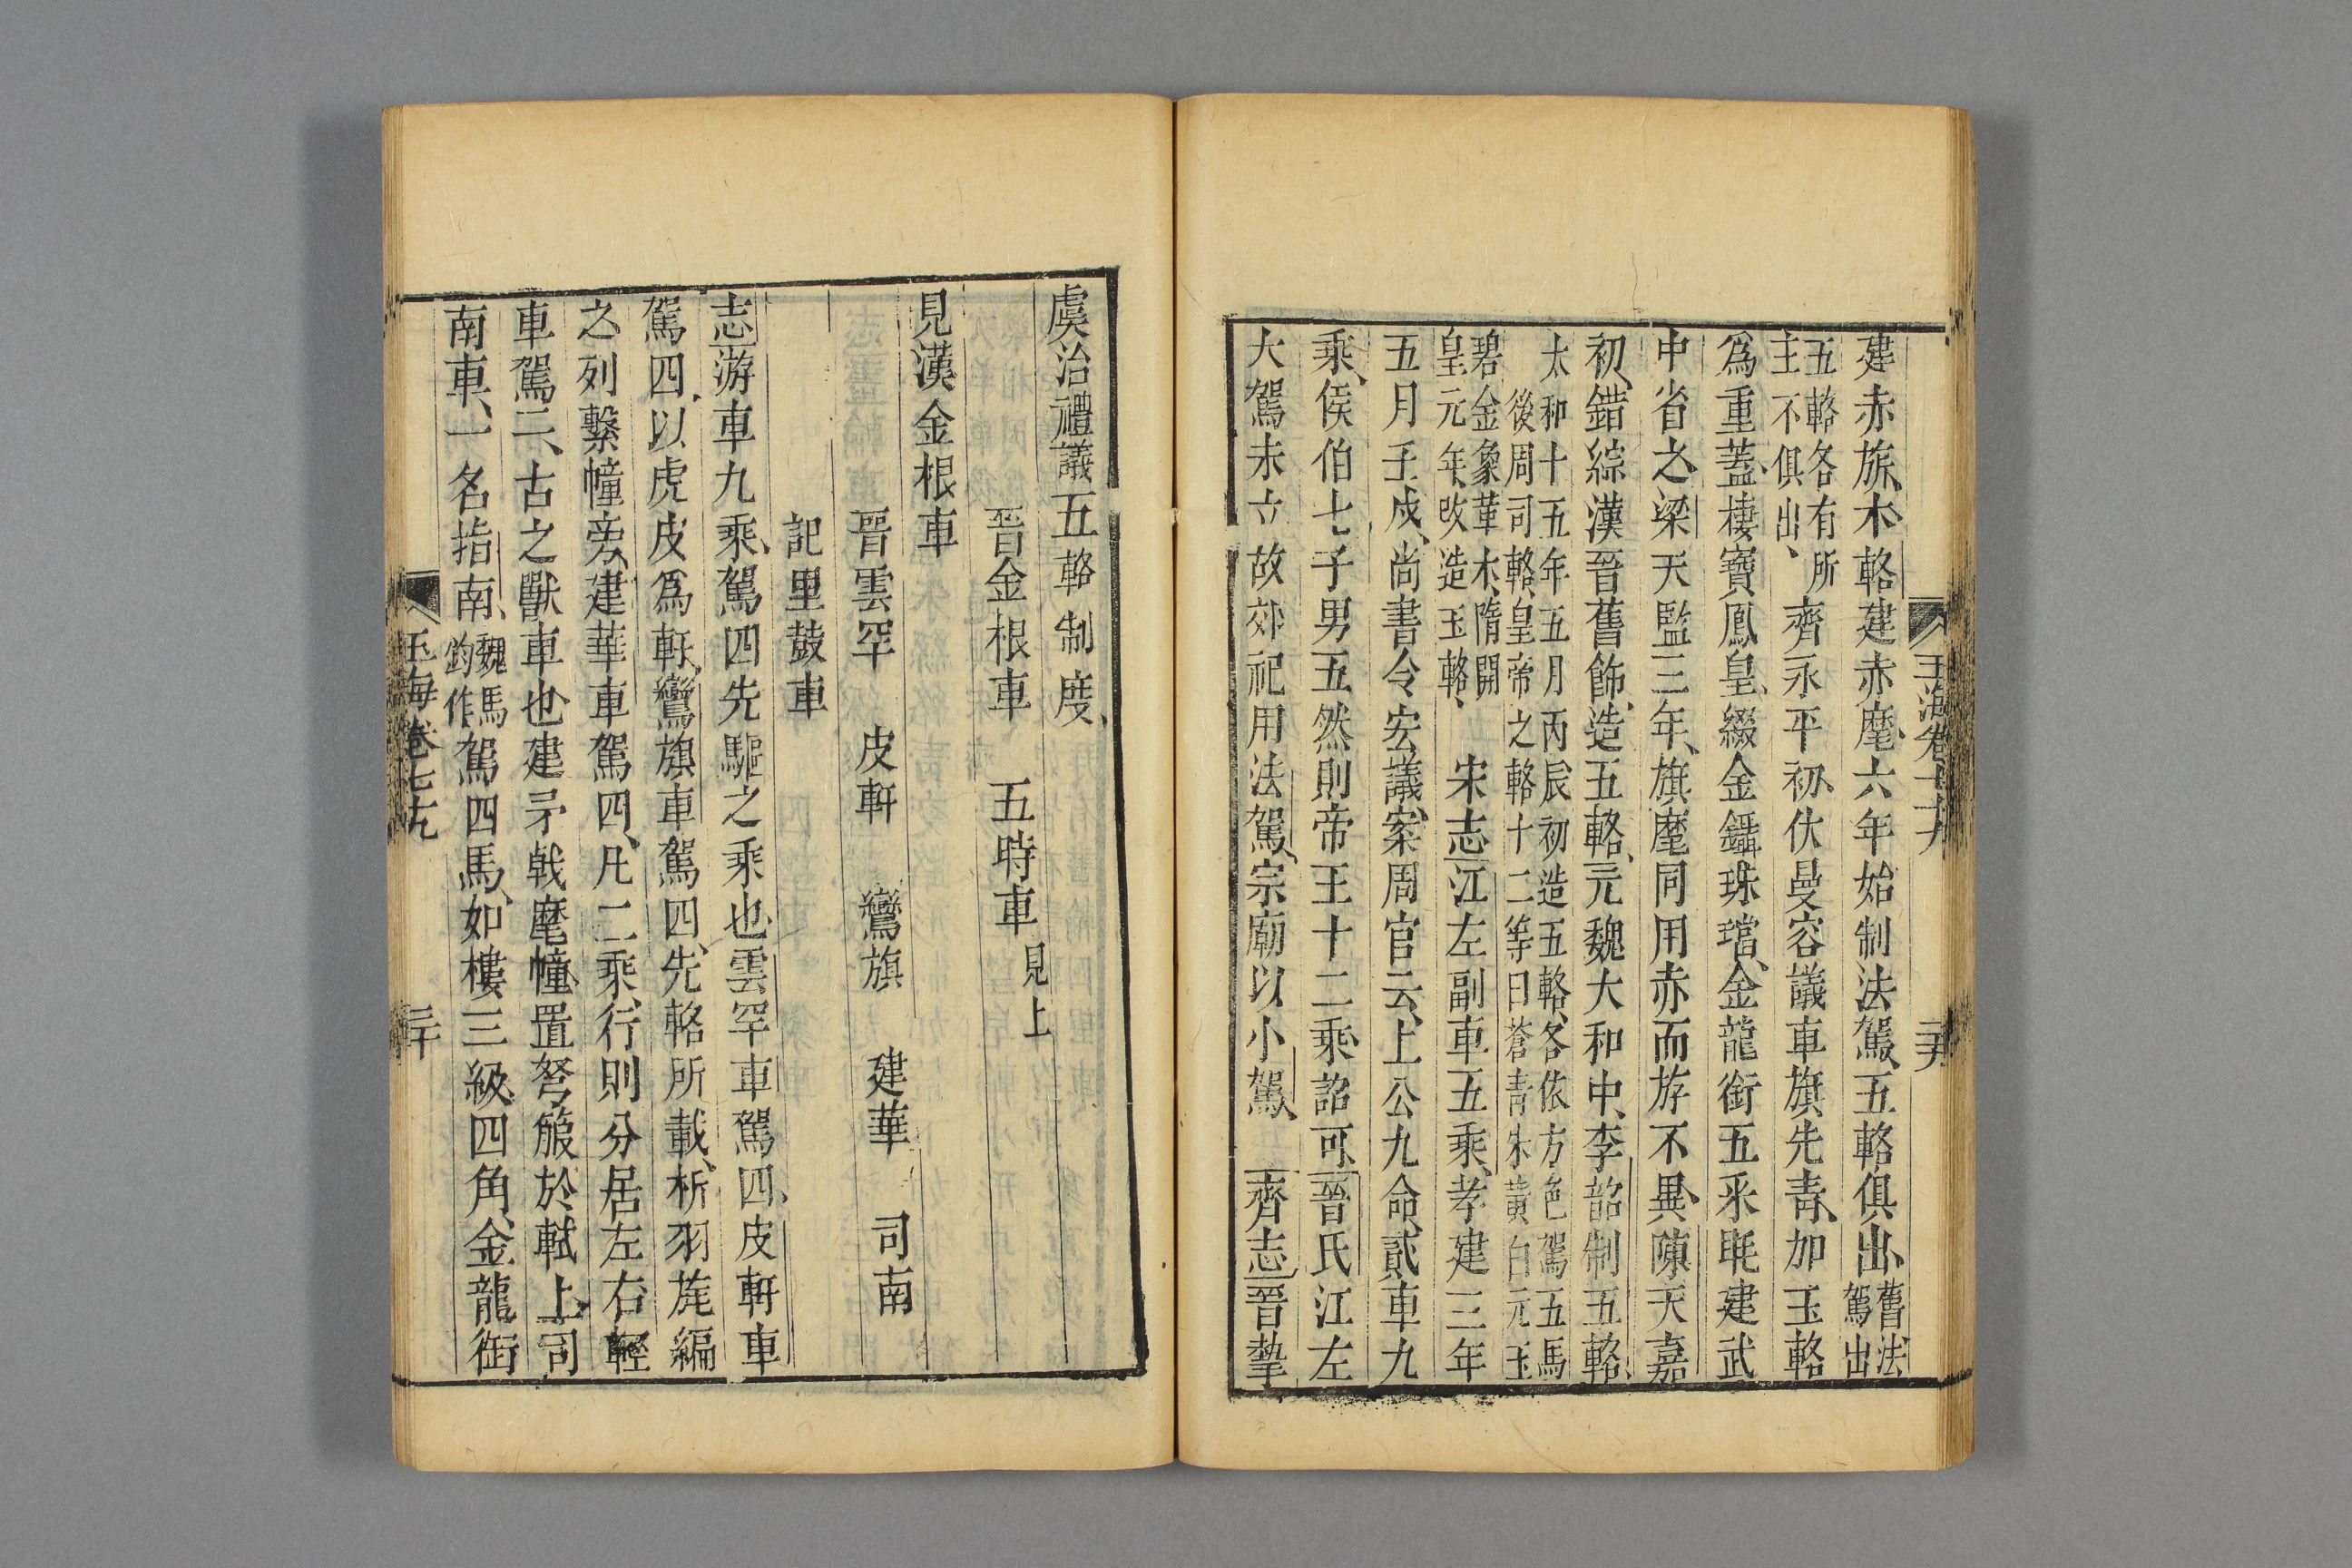 建赤旂木輅建赤麾六年始制法駕五輅俱出舊法駕出
五輅各有所主不俱出齊永平初伏曼容議車旗先青加玉輅
爲重蓋棲寶鳳皇綴金鑷珠璫金龍銜五釆眊建武
中省之梁天監三年旗麾同用赤而斿不異陳天嘉
初錯綜漢晉舊飾造五輅元魏大和中李韶制五輅
太和十五年五月丙辰初造五輅各依方色駕五馬後周司輅皇帝之輅十二等曰蒼青朱黃白元玉
碧金象革木隋開皇元年改造玉輅宋志江左副車五乘孝建三年
五月壬戌尚書令宏議案周官云上公九命貳車九
乘侯伯七子男五然則帝王十二乘詔可晉氏江左
大駕未立故郊祀用法駕宗廟以小駕齊志晉摯
玉海卷七十九
虞治禮議五輅制度
晉金根車 五時車見上
見漢金根車
晉雲罕 皮軒 鸞旗 建華 司南
記里鼓車
志游車九乘駕四先驅之乘也雲罕車駕四皮軒車
駕四以虎皮爲軒鸞旗車駕四先輅所載析羽旄編
之列繫幢旁建華車駕四凡二乘行則分居左右輕
車駕二古之獸車也建矛戟麾幢置弩箙於軾上司
南車一名指南魏馬鈞作駕四馬如樓三級四角金龍銜
玉海卷七十九 二十